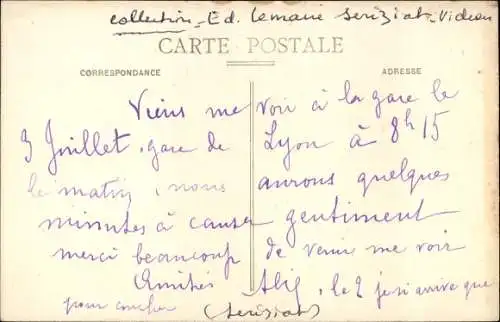 collection - Ed. Lemaire Seriziat - Videau
CARTE POSTALE
CORRESPONDANCE
ADRESSE
Viens me voir à la gare le
3 Juillet, gare de Lyon à 8h15
le matin, nous aurons quelques
minutes à causer gentiment
merci beaucoup de venir me voir
Amitiés le 2 je si arrive que
pour coucher (Seriziat)